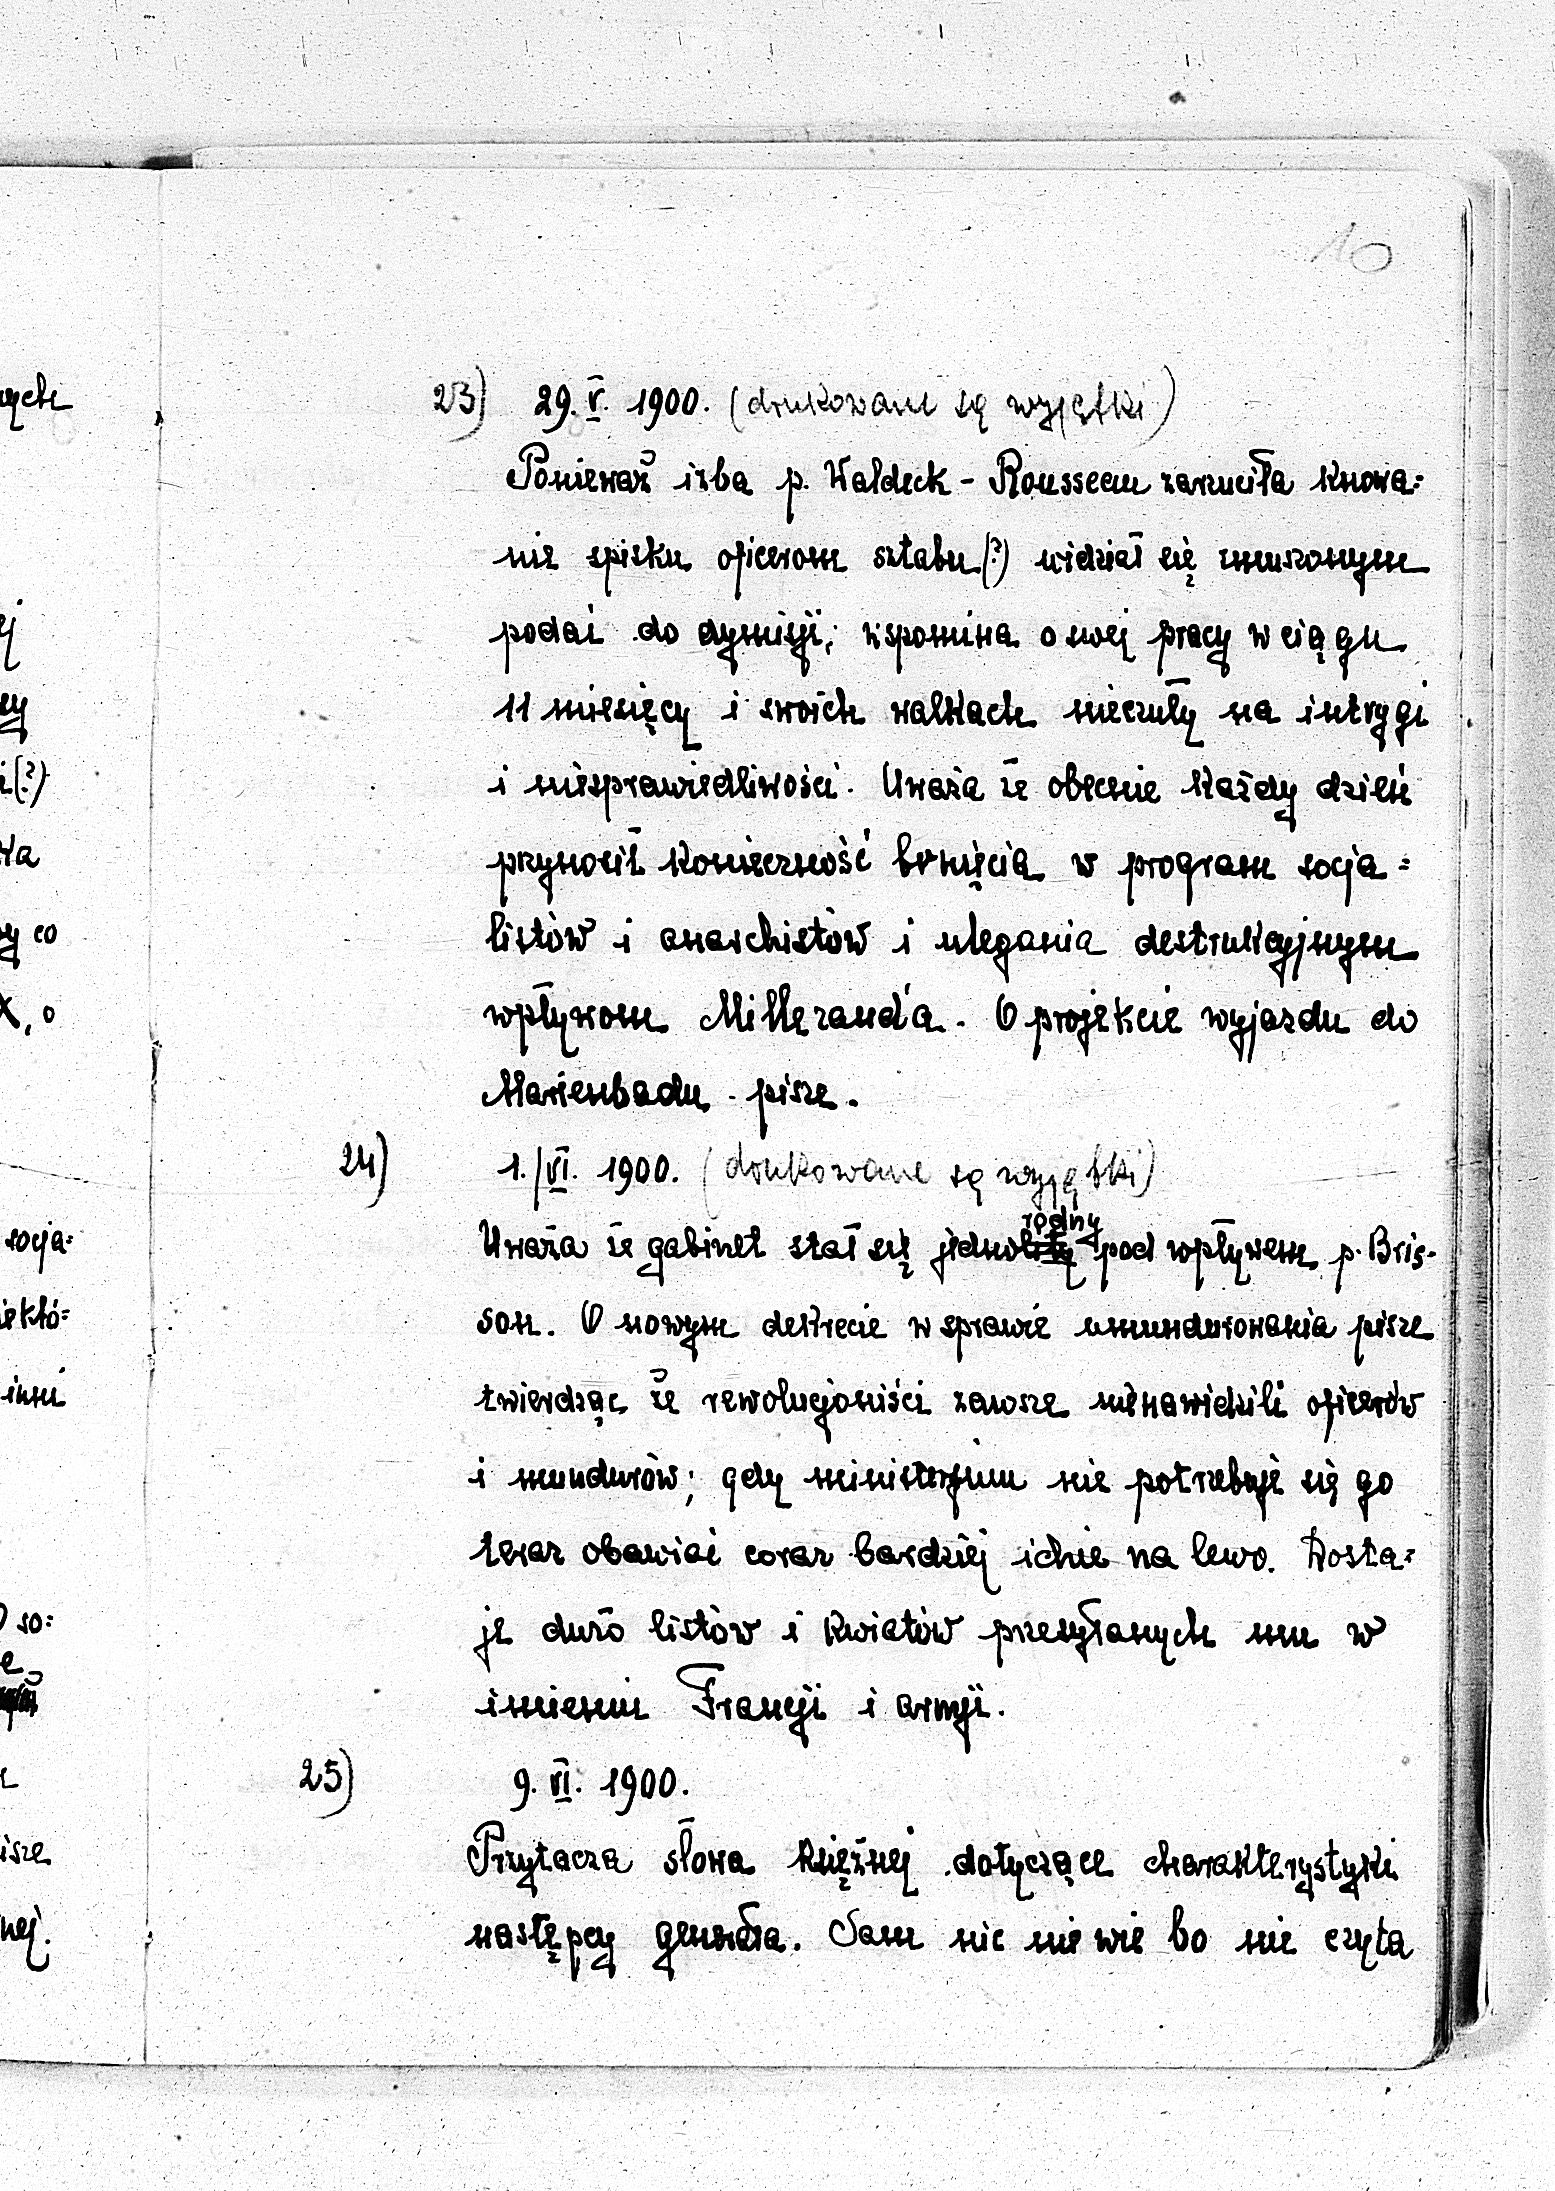 10
23) 29. V. 1900. (drukowane są wyjątki)
Ponieważ izba p. Waldeck - Rousseau zarzuciła knowa=
nie spisku oficerom sztabu(?) widział się zmuszonym
podać do dymisji; wspomina o swej pracy w ciągu
11 miesięcy i swoich walkach nieczuły na intrygi
i niesprawiedliwości. Uważa że obecnie każdy dzień
przynosił konieczność brnięcia w program socja=
listów i anarchistów i ulegania destrukcyjnym
wpływom Millerand'a. O projekcie wyjazdu do
Marienbadu pisze.
24) 1./VI. 1900. (drukowane są wyjątki)
Uważa że gabinet stał się jednolity rodny pod wpływem p. Bris-
son. O nowym dekrecie w sprawie umundurowania pisze
twierdząc że rewolucjoniści zawsze nienawidzili oficerów
i mundurów; gdy ministerjum nie potrzebuje się go
teraz obawiać coraz bardziej idzie na lewo. Dosta=
je dużo listów i kwiatów przesyłanych mu w
imieniu Francji i armji.
25) 9. VI. 1900.
Przytacza słowa księżnej dotyczące charakterystyki
następcy generała. Sam nic nie wie bo nie czyta